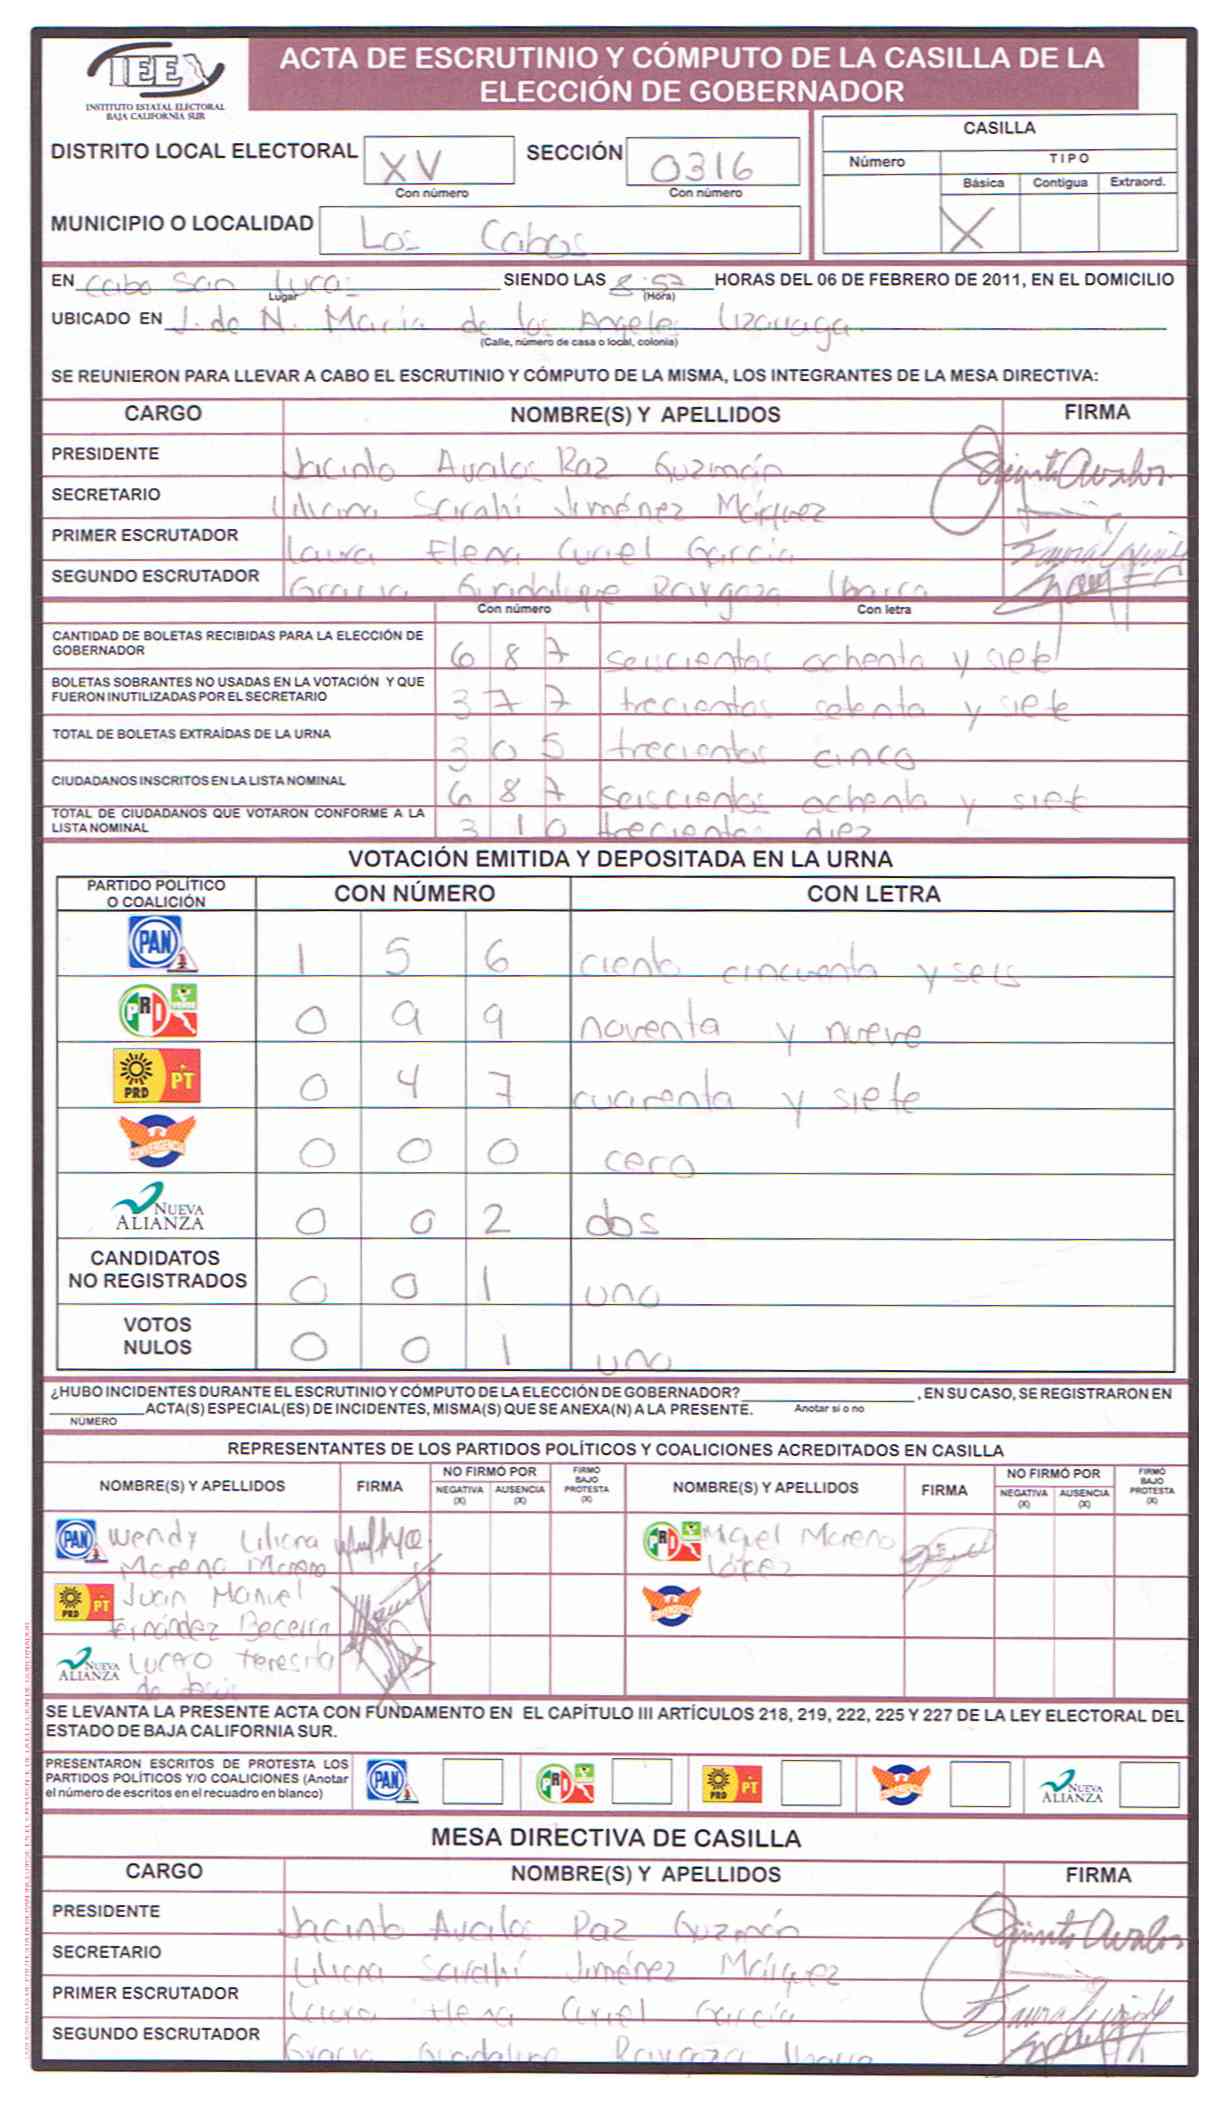 IEEA
INSTITUTO ESTATAL ELECTORAL
BAJA CALIFORNIA SUR
ACTA DE ESCRUTINIO Y CÓMPUTO DE LA CASILLA DE LA
ELECCIÓN DE GOBERNADOR
DISTRITO LOCAL ELECTORAL XV SECCIÓN 0316
Con número Con número
MUNICIPIO O LOCALIDAD Los Cabos
CASILLA
Número TIPO
Básica Contigua Extraord.
X
EN Cabo San Lucas SIENDO LAS 8:57 HORAS DEL 06 DE FEBRERO DE 2011, EN EL DOMICILIO
Lugar (Hora)
UBICADO EN J. de N. María de los Angeles
(Calle, número de casa o local, colonia)
SE REUNIERON PARA LLEVAR A CABO EL ESCRUTINIO Y CÓMPUTO DE LA MISMA, LOS INTEGRANTES DE LA MESA DIRECTIVA:
CARGO NOMBRE(S) Y APELLIDOS FIRMA
PRESIDENTE Jacinto Avalos Paz Guzmán Jacinto Avalos
SECRETARIO Liliana Sarahí Jiménez Márquez
PRIMER ESCRUTADOR Laura Elena Curiel García
SEGUNDO ESCRUTADOR Guadalupe Raygoza Ibarra
Con número Con letra
CANTIDAD DE BOLETAS RECIBIDAS PARA LA ELECCIÓN DE
GOBERNADOR 6 8 7 seiscientos ochenta y siete
BOLETAS SOBRANTES NO USADAS EN LA VOTACIÓN Y QUE
FUERON INUTILIZADAS POR EL SECRETARIO 3 7 7 trecientos setenta y siete
TOTAL DE BOLETAS EXTRAÍDAS DE LA URNA 3 0 5 trecientos cinco
CIUDADANOS INSCRITOS EN LA LISTA NOMINAL 6 8 7 seiscientos ochenta y siete
TOTAL DE CIUDADANOS QUE VOTARON CONFORME A LA
LISTA NOMINAL 3 1 0 trecientos diez
VOTACIÓN EMITIDA Y DEPOSITADA EN LA URNA
PARTIDO POLÍTICO
O COALICIÓN CON NÚMERO CON LETRA
PAN 1 5 6 ciento cincuenta y seis
PRI VERDE 0 9 9 noventa y nueve
PRD PT 0 4 7 cuarenta y siete
CONVERGENCIA 0 0 0 cero
NUEVA ALIANZA 0 0 2 dos
CANDIDATOS
NO REGISTRADOS 0 0 1 uno
VOTOS
NULOS 0 0 1 uno
¿HUBO INCIDENTES DURANTE EL ESCRUTINIO Y CÓMPUTO DE LA ELECCIÓN DE GOBERNADOR? , EN SU CASO, SE REGISTRARON EN
ACTA(S) ESPECIAL(ES) DE INCIDENTES, MISMA(S) QUE SE ANEXA(N) A LA PRESENTE. Anotar si o no
NÚMERO
REPRESENTANTES DE LOS PARTIDOS POLÍTICOS Y COALICIONES ACREDITADOS EN CASILLA
NOMBRE(S) Y APELLIDOS FIRMA NO FIRMÓ POR NEGATIVA (X) AUSENCIA (X) FIRMÓ BAJO PROTESTA (X) NOMBRE(S) Y APELLIDOS FIRMA NO FIRMÓ POR NEGATIVA (X) AUSENCIA (X) FIRMÓ BAJO PROTESTA (X)
PAN Wendy Liliana
Moreno Moreno
PRI Miguel Moreno
López
PRD PT Juan Manuel
Fernández Becerra
CONVERGENCIA
NUEVA ALIANZA Lucero Teresita
de Jesús
SE LEVANTA LA PRESENTE ACTA CON FUNDAMENTO EN EL CAPÍTULO III ARTÍCULOS 218, 219, 222, 225 Y 227 DE LA LEY ELECTORAL DEL
ESTADO DE BAJA CALIFORNIA SUR.
PRESENTARON ESCRITOS DE PROTESTA LOS
PARTIDOS POLÍTICOS Y/O COALICIONES (Anotar
el número de escritos en el recuadro en blanco)
PAN PRI PRD PT CONVERGENCIA NUEVA ALIANZA
MESA DIRECTIVA DE CASILLA
CARGO NOMBRE(S) Y APELLIDOS FIRMA
PRESIDENTE Jacinto Avalos Paz Guzmán Jacinto Avalos
SECRETARIO Liliana Sarahí Jiménez Márquez
PRIMER ESCRUTADOR Laura Elena Curiel García
SEGUNDO ESCRUTADOR Guadalupe Raygoza Ibarra